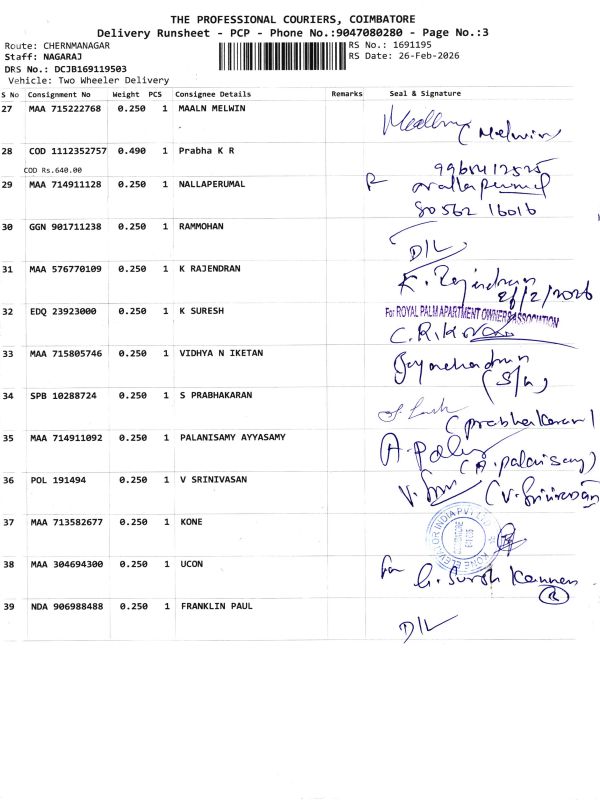 THE PROFESSIONAL COURIERS, COIMBATORE
Delivery Runsheet - PCP - Phone No.:9047080280 - Page No.:3
Route: CHERMANAGAR
RS No.: 1691195
Staff: NAGARAJ
RS Date: 26-Feb-2026
DRS No.: DCJB169119503
Vehicle: Two Wheeler Delivery
S No Consignment No Weight PCS Consignee Details Remarks Seal & Signature
27 MAA 715222768 0.250 1 MAALN MELWIN
(Melwin)
28 COD 1112352757 0.490 1 Prabha K R
COD Rs.640.00
29 MAA 714911128 0.250 1 NALLAPERUMAL
Nallaperumal
80562 16016
30 GGN 901711238 0.250 1 RAMMOHAN
D/L
31 MAA 576770109 0.250 1 K RAJENDRAN
K. Rajendran
26/2/2026
32 EDQ 23923000 0.250 1 K SURESH
For ROYAL PALM APARTMENT OWNERS ASSOCIATION
33 MAA 715805746 0.250 1 VIDHYA N IKETAN
Jayachandran
(S/G)
34 SPB 10288724 0.250 1 S PRABHAKARAN
(prabhakaran)
35 MAA 714911092 0.250 1 PALANISAMY AYYASAMY
(A. palaisamy)
36 POL 191494 0.250 1 V SRINIVASAN
(V. Srinivasan)
37 MAA 713582677 0.250 1 KONE
KONE ELEVATOR INDIA PVT LTD
38 MAA 304694300 0.250 1 UCON
for G. Suresh Kannan
39 NDA 906988488 0.250 1 FRANKLIN PAUL
D/L